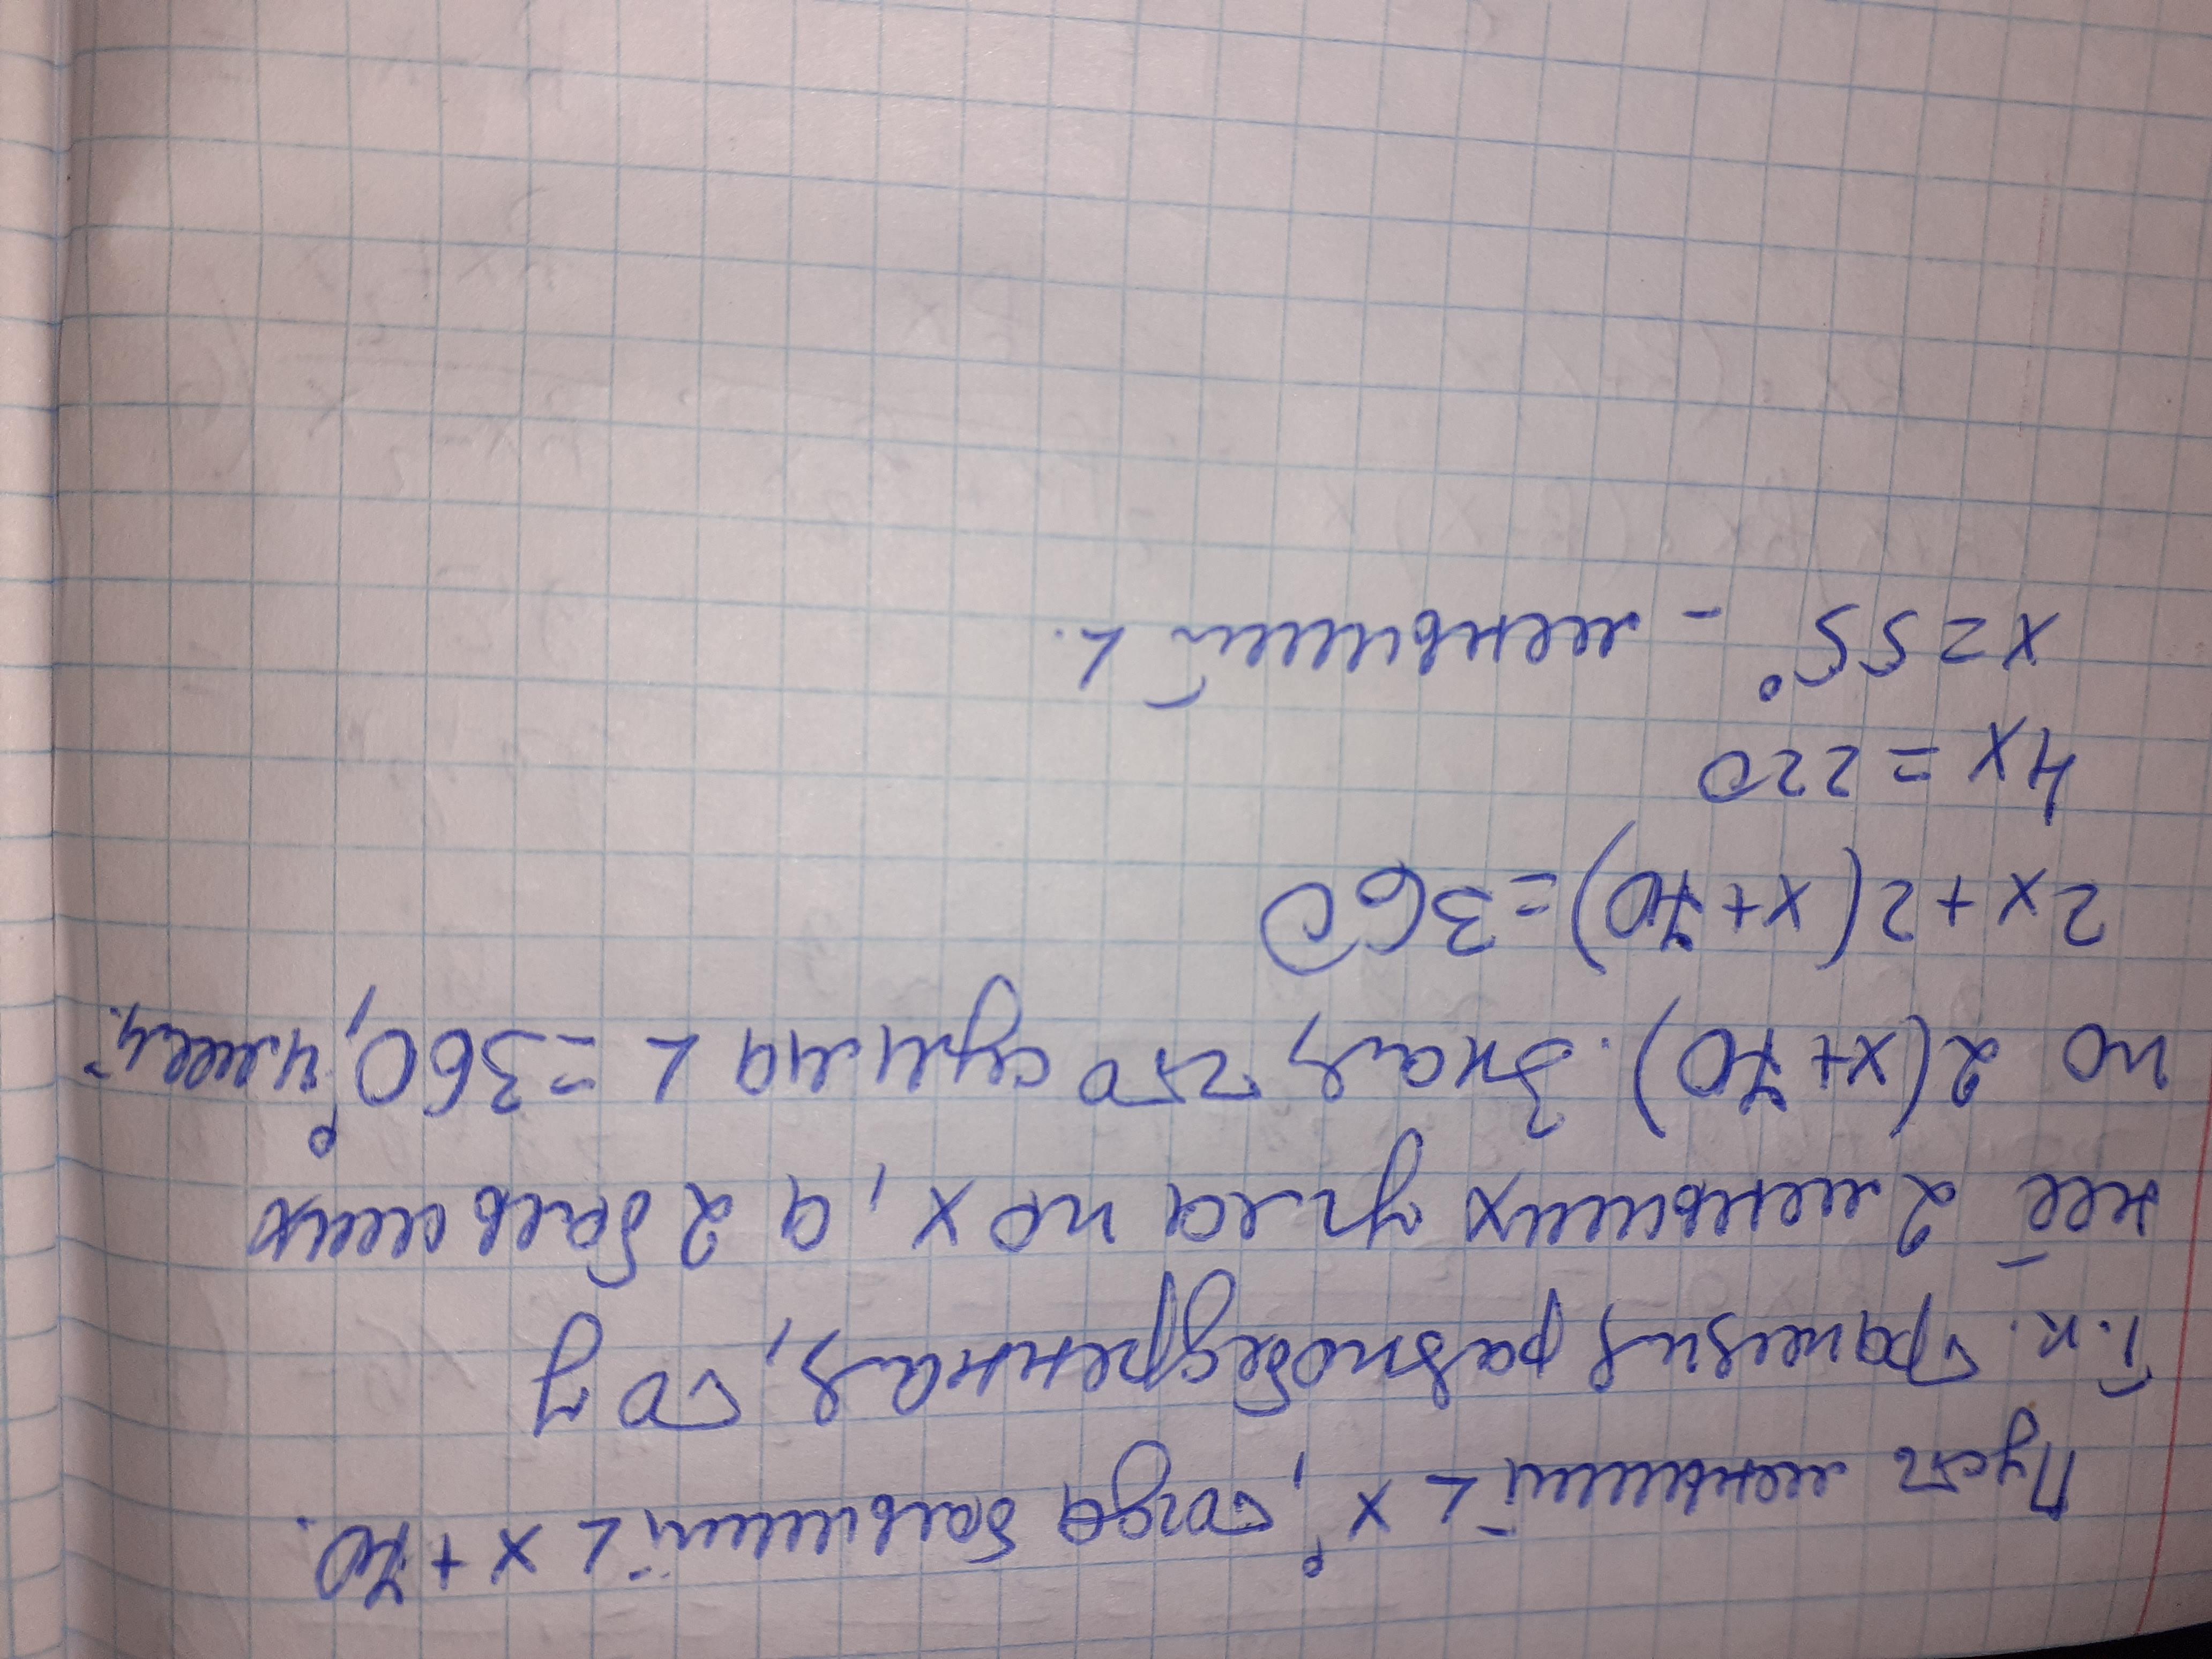 Пусть меньший ∠ x°, тогда больший ∠ x + 70.
Т.к. трапеция равнобедренная, то у
неё 2 меньших угла по x, а 2 больших
по 2(x+70). Зная, что сумма ∠ = 360°, имеем:
2x + 2(x+70) = 360
4x = 220
x = 55° - меньший ∠.